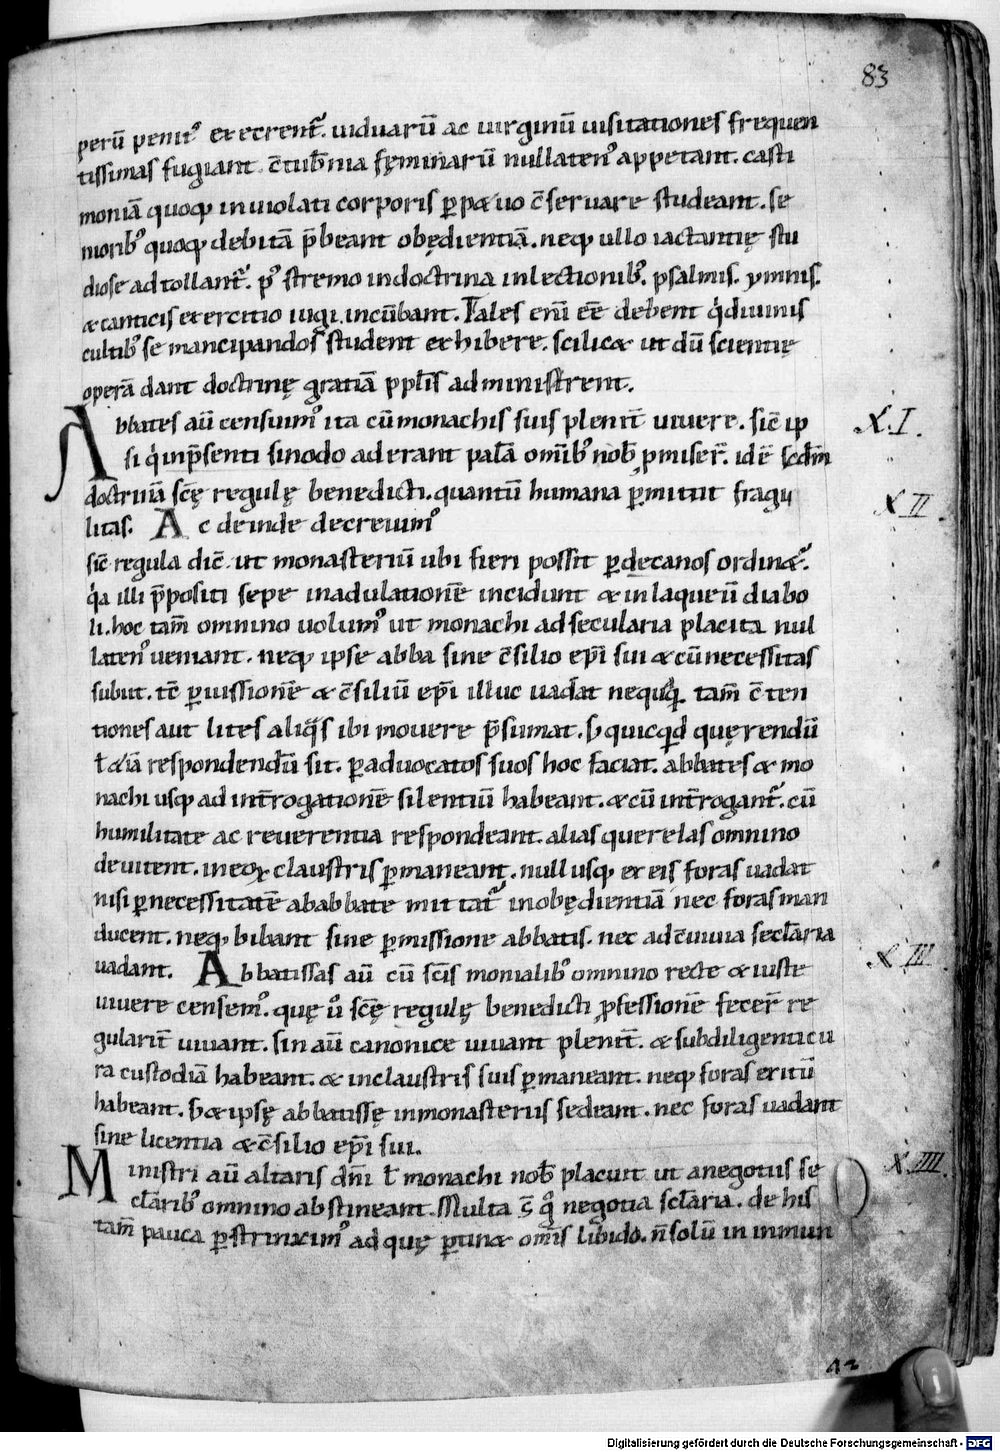 83
perū penit᷒ execrent᷑. uiduarū ac uirginū uisitationes frequen
tissimas fugiant. c̄tub̄nia fęminarū nullaten᷒ appetant. casti
moniā quoqꝫ inuiolati corporis ꝑpetuo c̄seruare studeant. se
niorib᷒ quoqꝫ debitā p̄beant obędientiā. neqꝫ ullo iactantię stu
diose adtollant᷑. p᷒stremo in doctrina in lectionib᷒. psalmis. ymnis.
& canticis exercitio iugi incūbant. Tales eni ēē debent q̇ diuinis
cultib᷒ se mancipandos student exhibere. scilic& ut dū scientię
operā dant doctrinę gratiā ppl̄is administrent.
Abbates aū censuim᷒ ita cū monachis suis plenit̄ uiuere. sic̄ ip
X.I.
si q̇ in p̄senti sinodo aderant palā omīb᷒ nob̄ ꝓmiser̄. idē scdm̄
doctrinā sc̄ę regulę benedicti. quantū humana ꝑmittit fragi
X II.
litas. Ac deinde decreuim᷒
sic̄ regula dic̄. ut monasteriū ubi fieri possit ꝑ decanos ordin&᷑.
q̇a illi p̄positi sepe in adulationē incidunt & in laqueū diabo
li. hoc tam̄ omnino uolum᷒ ut monachi ad secularia placita nul
laten᷒ ueniant. neqꝫ ipse abba sine c̄silio ep̄i sui & cū necessitas
subit. tc̄ ꝑ iussionē & c̄siliū ep̄i illuc uadat nequaq̄. tam̄ c̄ten
tiones aut lites aliq̄s ibi mouere p̄sumat. s; quicq̇d querendū
ł &iā respondendū sit. ꝑ aduocatos suos hoc faciat. abbates & mo
nachi usqꝫ ad int̄rogationē silentiū habeant. & cū int̄rogant᷑. cū
humilitate ac reuerentia respondeant. alias querelas omnino
deuitent. in eoꝝ claustris ꝑmaneant. null usqꝫ ex eis foras uadat
nisi ꝑ necessitatē ab abbate mittat᷑ in obędientiā nec foras man
ducent. neqꝫ bibant sine ꝑmissione abbatis. nec ad c̄uiuia secl̄aria
uadant. Abbatissas aū cū sc̄is monialib᷒ omnino recte & iuste
X III.
uiuere censem᷒. quę ů sc̄ę regulę benedicti ꝓfessionē fecer̄ re
gularit̄ uiuant. sin aū canonice uiuant plenit̄. & sub diligenti cu
ra custodiā habeant. & in claustris suis ꝑmaneant. neqꝫ foras exitū
habeant. s; & ipsę abbatissę in monasteriis sedeant. nec foras uadant
sine licentia & c̄silio ep̄i sui.
Ministri aū altaris dn̄i ł monachi nob̄ placuit ut a negotiis se
X IIII.
cl̄arib᷒ omnino abstineant. Multa s̄ q̊ negotia scl̄aria. de his
tam̄ pauca ꝑstrinxim᷒ ad quę ꝑtin& om̄is libido. n̄ solū in inmun
42
Digitalisierung gefördert durch die Deutsche Forschungsgemeinschaft - DFG